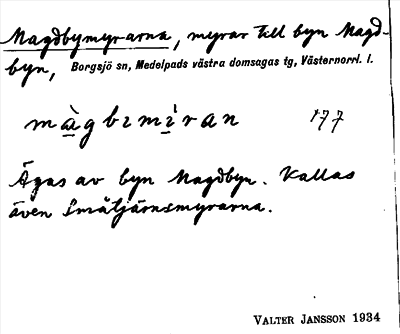 Magdbymyrarna, myrar till byn Magd-
byn, Borgsjö sn, Medelpads västra domsagas tg, Västernorrl. l.
màgbımỳran 177
Ägas av byn Magdbyn. Kallas
även Småtjärnsmyrarna.
VALTER JANSSON 1934